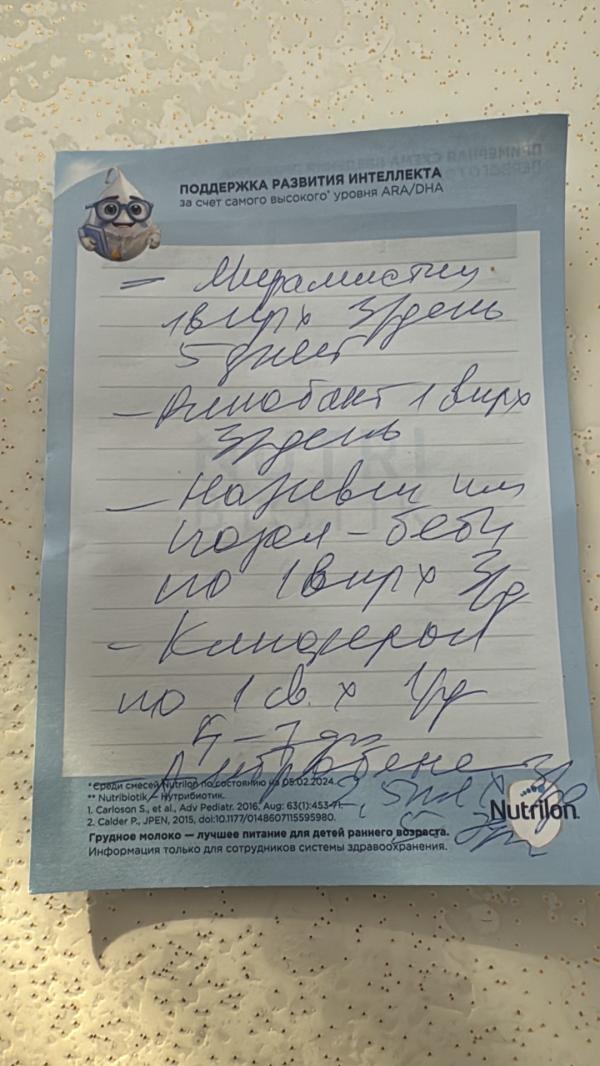 ПОДДЕРЖКА РАЗВИТИЯ ИНТЕЛЛЕКТА
за счет самого высокого* уровня ARA/DHA
= Мирамистин
1 впрх 3р день
5 дней
- 1 впрх
3р день
- Називин или
назол-беби
по 1 впр х 3р д
- Кандферон
по 1 св. х 1р д
5-7 дн
- Амбробене
2,5 мл х 3р
*Среди смесей Nutrilon по состоянию на 05.02.2024.
** Nutribiotik – Нутрибиотик.
1. Carloson S., et al., Adv Pediatr. 2016, Aug: 63(1):453-71.
2. Calder P., JPEN, 2015, doi:10.1177/0148607115595980.
Nutrilon
Грудное молоко — лучшее питание для детей раннего возраста.
Информация только для сотрудников системы здравоохранения.